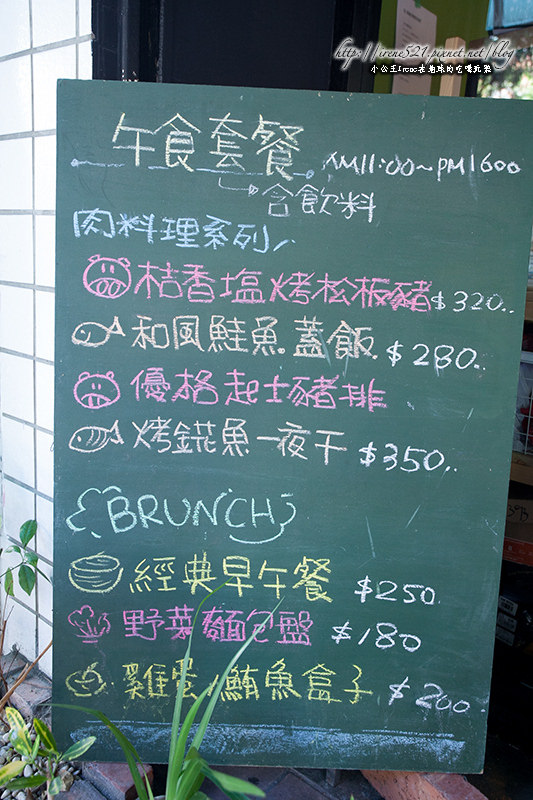 https://irene521.pixnet.net/blog
小公主Irene在地球的吃喝玩樂
午食套餐 AM11:00~PM1600
含飲料
肉料理系列
桔香塩烤松板豬 $320..
和風鮭魚蓋飯. $280..
優格起士豬排
烤錵魚一夜干 $350..
BRUNCH
經典早午餐 $250.
野菜麵包盤 $180
雞蛋/鮪魚盒子 $200